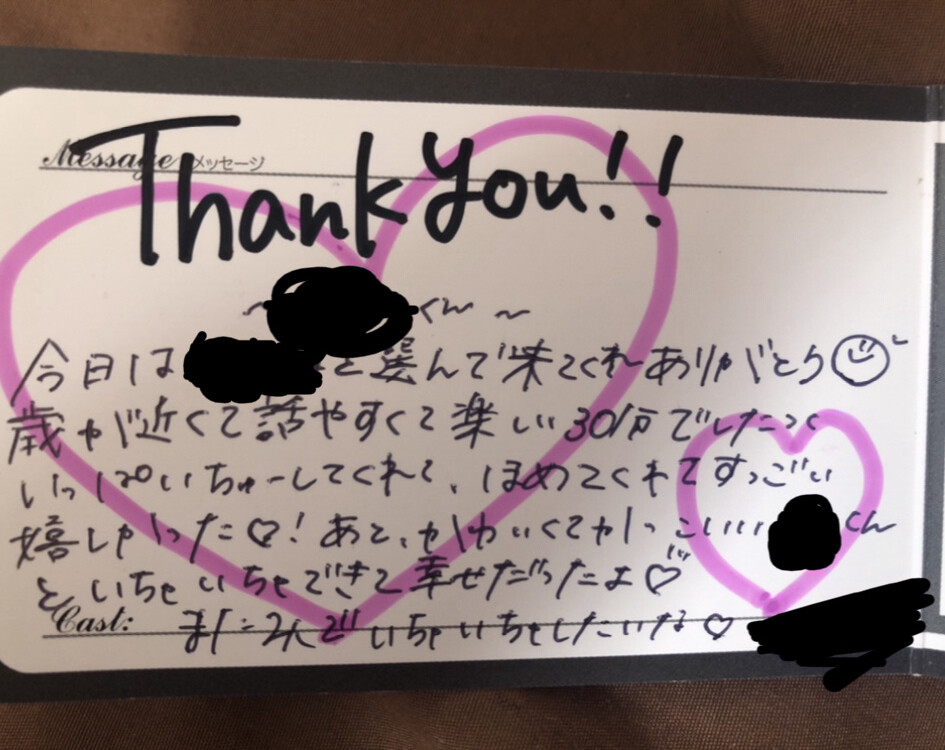 Message メッセージ
Thank You!!
~ くん ~
今日は を選んで来てくれありがとう
歳が近くて話やすくて楽しい30分でしたっ
いっぱいちゅーしてくれて、ほめてくれてすっごい
嬉しかった♡!あと、かわいくてかっこいい くん
といちゃいちゃできて幸せだったよ♡
Cast: また2人でいちゃいちゃしたいな♡